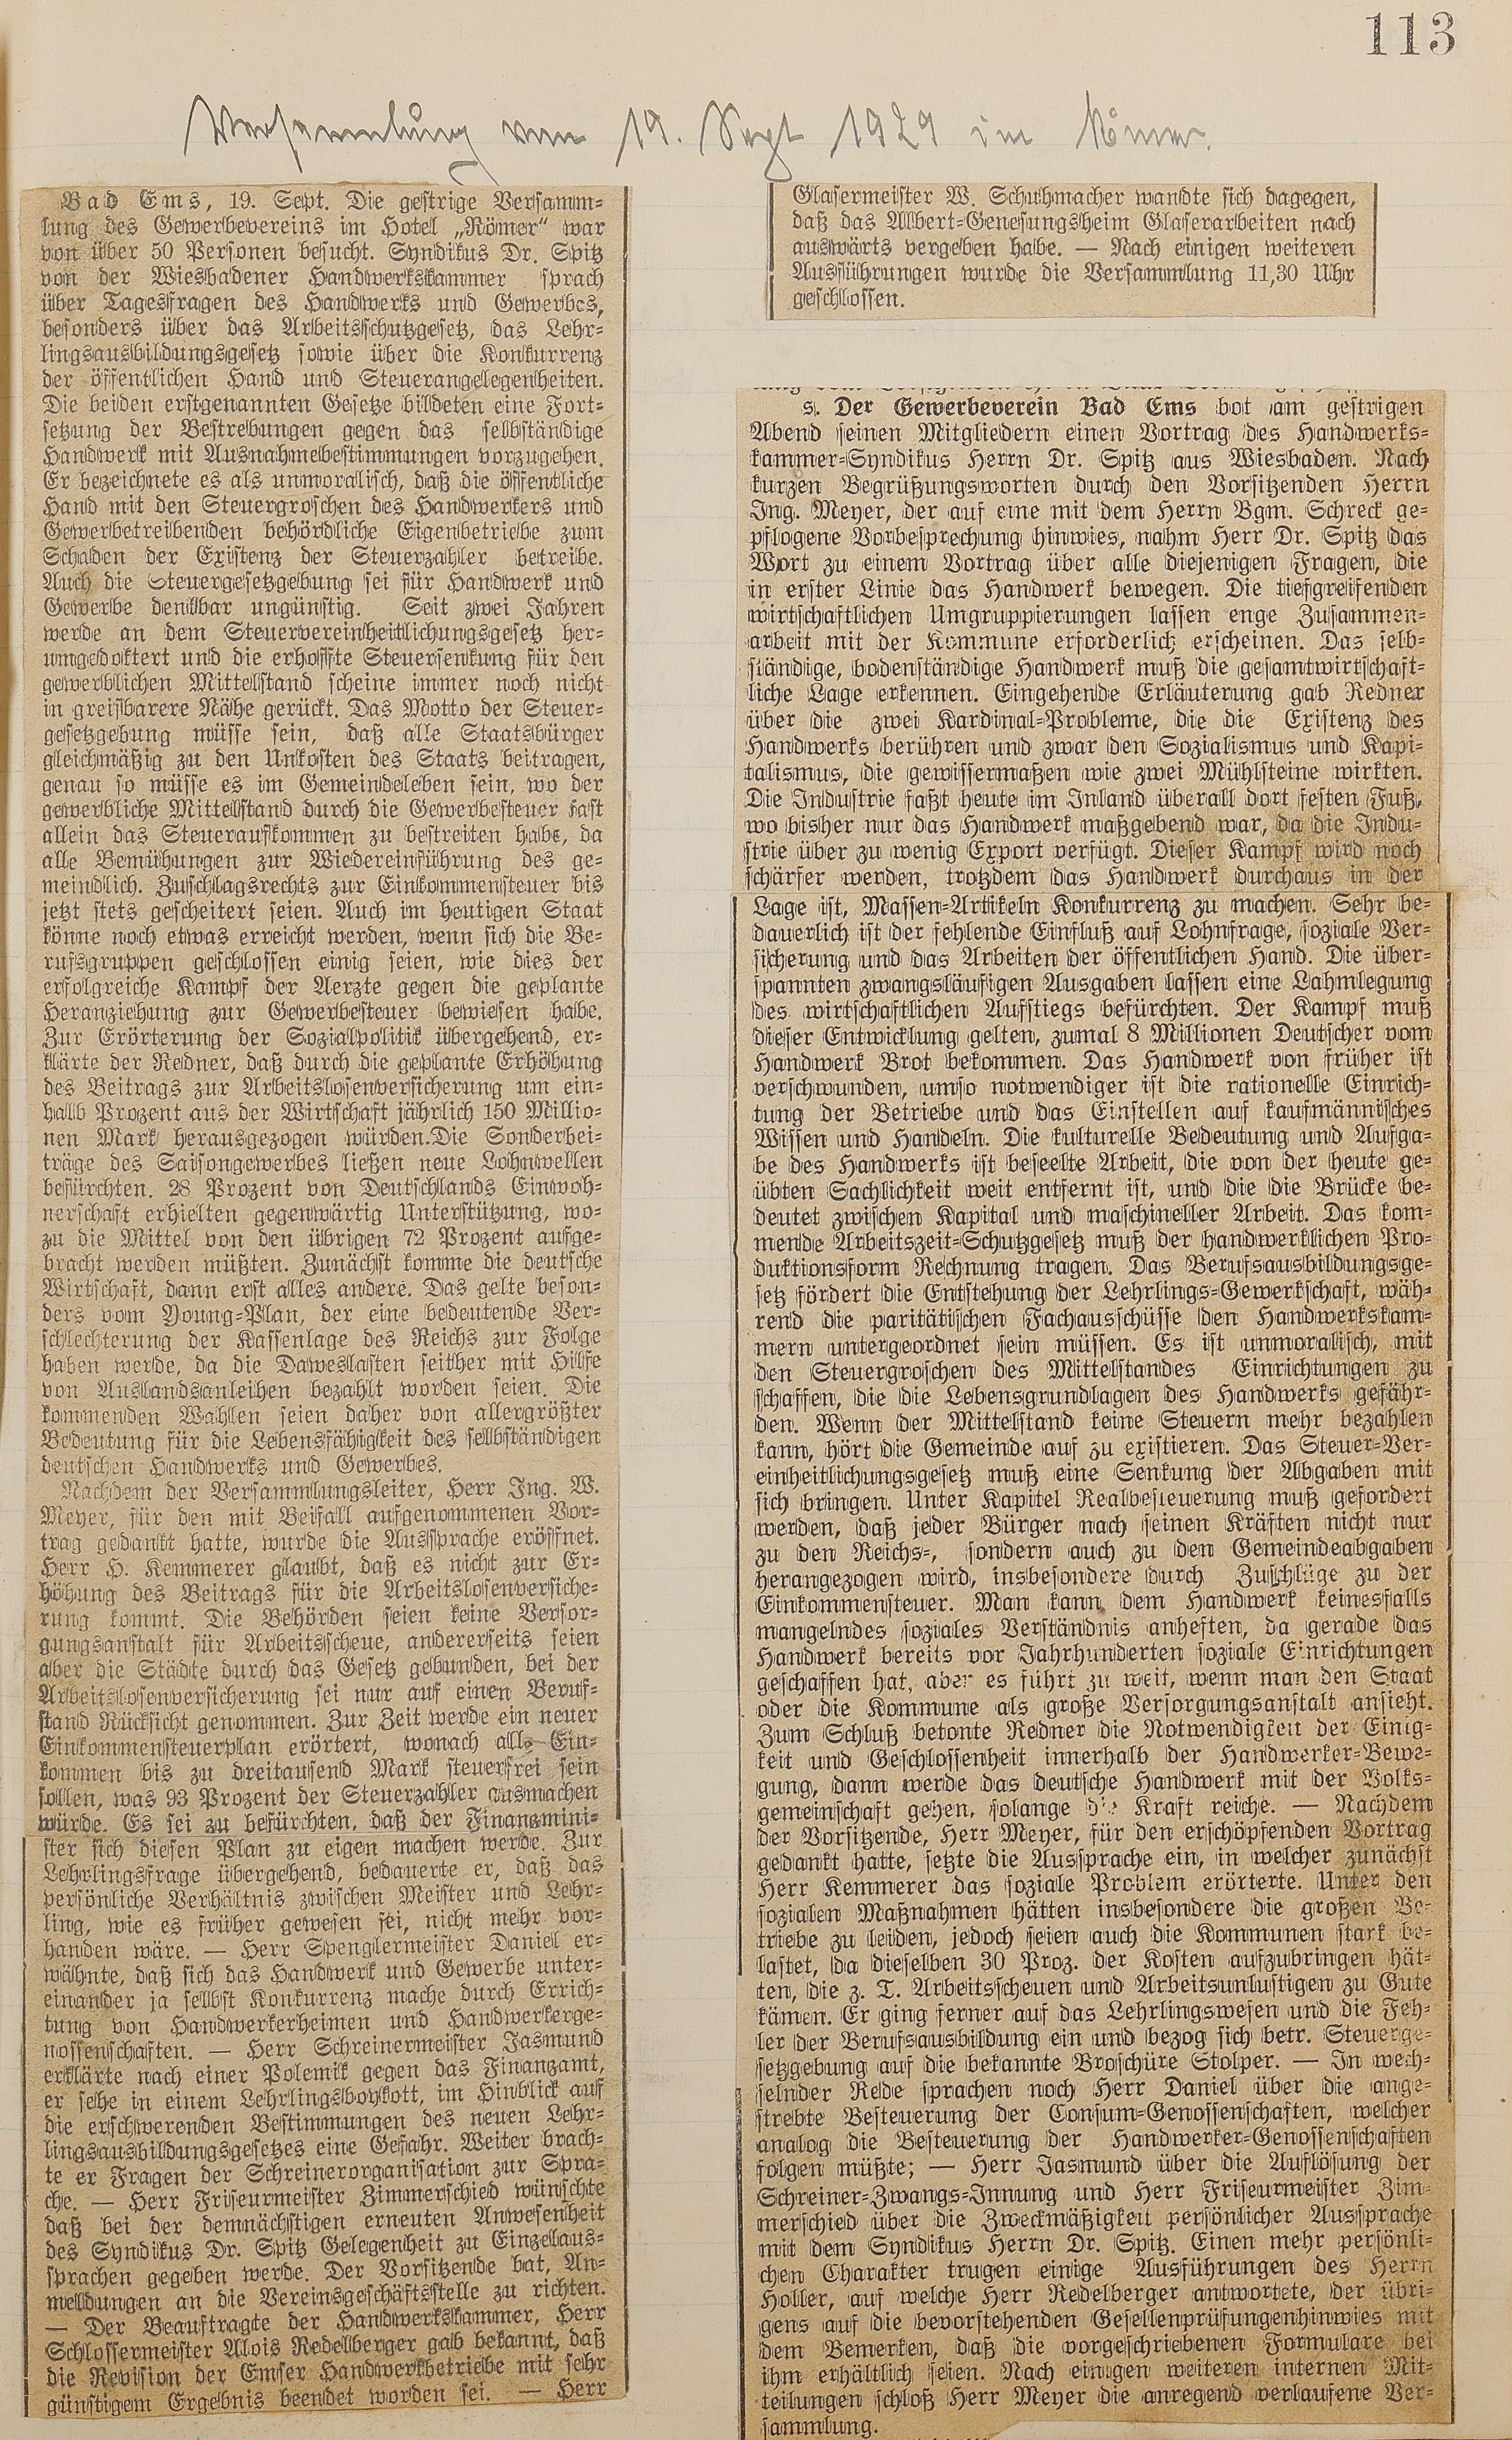 113
Versammlung vom 19. Sept 1929 im Römer.
Bad Ems, 19. Sept. Die gestrige Versamm-
lung des Gewerbevereins im Hotel „Römer“ war
von über 50 Personen besucht. Syndikus Dr. Spitz
von der Wiesbadener Handwerkskammer sprach
über Tagesfragen des Handwerks und Gewerbes,
besonders über das Arbeitsschutzgesetz, das Lehr-
lingsausbildungsgesetz sowie über die Konkurrenz
der öffentlichen Hand und Steuerangelegenheiten.
Die beiden erstgenannten Gesetze bildeten eine Fort-
setzung der Bestrebungen gegen das selbständige
Handwerk mit Ausnahmebestimmungen vorzugehen.
Er bezeichnete es als unmoralisch, daß die öffentliche
Hand mit den Steuergroschen des Handwerkers und
Gewerbetreibenden behördliche Eigenbetriebe zum
Schaden der Existenz der Steuerzahler betreibe.
Auch die Steuergesetzgebung sei für Handwerk und
Gewerbe denkbar ungünstig. Seit zwei Jahren
werde an dem Steuervereinheitlichungsgesetz her-
umgedoktert und die erhoffte Steuersenkung für den
gewerblichen Mittelstand scheine immer noch nicht
in greifbarere Nähe gerückt. Das Motto der Steuer-
gesetzgebung müsse sein, daß alle Staatsbürger
gleichmäßig zu den Unkosten des Staats beitragen,
genau so müsse es im Gemeindeleben sein, wo der
gewerbliche Mittelstand durch die Gewerbesteuer fast
allein das Steueraufkommen zu bestreiten habe, da
alle Bemühungen zur Wiedereinführung des ge-
meindlich. Zuschlagsrechts zur Einkommensteuer bis
jetzt stets gescheitert seien. Auch im heutigen Staat
könne noch etwas erreicht werden, wenn sich die Be-
rufsgruppen geschlossen einig seien, wie dies der
erfolgreiche Kampf der Aerzte gegen die geplante
Heranziehung zur Gewerbesteuer bewiesen habe.
Zur Erörterung der Sozialpolitik übergehend, er-
klärte der Redner, daß durch die geplante Erhöhung
des Beitrags zur Arbeitslosenversicherung um ein-
halb Prozent aus der Wirtschaft jährlich 150 Millio-
nen Mark herausgezogen würden.Die Sonderbei-
träge des Saisongewerbes ließen neue Lohnwellen
befürchten. 28 Prozent von Deutschlands Einwoh-
nerschaft erhielten gegenwärtig Unterstützung, wo-
zu die Mittel von den übrigen 72 Prozent aufge-
bracht werden müßten. Zunächst komme die deutsche
Wirtschaft, dann erst alles andere. Das gelte beson-
ders vom Young-Plan, der eine bedeutende Ver-
schlechterung der Kassenlage des Reichs zur Folge
haben werde, da die Daweslasten seither mit Hilfe
von Auslandsanleihen bezahlt worden seien. Die
kommenden Wahlen seien daher von allergrößter
Bedeutung für die Lebensfähigkeit des selbständigen
deutschen Handwerks und Gewerbes.
Nachdem der Versammlungsleiter, Herr Ing. W.
Meyer, für den mit Beifall aufgenommenen Vor-
trag gedankt hatte, wurde die Aussprache eröffnet.
Herr H. Kemmerer glaubt, daß es nicht zur Er-
höhung des Beitrags für die Arbeitslosenversiche-
rung kommt. Die Behörden seien keine Versor-
gungsanstalt für Arbeitsscheue, andererseits seien
aber die Städte durch das Gesetz gebunden, bei der
Arbeitslosenversicherung sei nur auf einen Beruf-
stand Rücksicht genommen. Zur Zeit werde ein neuer
Einkommensteuerplan erörtert, wonach alle Ein-
kommen bis zu dreitausend Mark steuerfrei sein
sollen, was 93 Prozent der Steuerzahler ausmachen
würde. Es sei zu befürchten, daß der Finanzmini-
ster sich diesen Plan zu eigen machen werde. Zur
Lehrlingsfrage übergehend, bedauerte er, daß das
persönliche Verhältnis zwischen Meister und Lehr-
ling, wie es früher gewesen sei, nicht mehr vor-
handen wäre. — Herr Spenglermeister Daniel er-
wähnte, daß sich das Handwerk und Gewerbe unter-
einander ja selbst Konkurrenz mache durch Errich-
tung von Handwerkerheimen und Handwerkerge-
nossenschaften. — Herr Schreinermeister Jasmund
erklärte nach einer Polemik gegen das Finanzamt,
er sehe in einem Lehrlingsboykott, im Hinblick auf
die erschwerenden Bestimmungen des neuen Lehr-
lingsausbildungsgesetzes eine Gefahr. Weiter brach-
te er Fragen der Schreinerorganisation zur Spra-
che. — Herr Friseurmeister Zimmerschied wünschte
daß bei der demnächstigen erneuten Anwesenheit
des Syndikus Dr. Spitz Gelegenheit zu Einzelaus-
sprachen gegeben werde. Der Vorsitzende bat, An-
meldungen an die Vereinsgeschäftsstelle zu richten.
— Der Beauftragte der Handwerkskammer, Herr
Schlossermeister Alois Redelberger gab bekannt, daß
die Revision der Emser Handwerkbetriebe mit sehr
günstigem Ergebnis beendet worden sei. — Herr
Glasermeister W. Schuhmacher wandte sich dagegen,
daß das Albert-Genesungsheim Glaserarbeiten nach
auswärts vergeben habe. — Nach einigen weiteren
Ausführungen wurde die Versammlung 11,30 Uhr
geschlossen.
s. Der Gewerbeverein Bad Ems bot am gestrigen
Abend seinen Mitgliedern einen Vortrag des Handwerks-
kammer-Syndikus Herrn Dr. Spitz aus Wiesbaden. Nach
kurzen Begrüßungsworten durch den Vorsitzenden Herrn
Ing. Meyer, der auf eine mit dem Herrn Bgm. Schreck ge-
pflogene Vorbesprechung hinwies, nahm Herr Dr. Spitz das
Wort zu einem Vortrag über alle diejenigen Fragen, die
in erster Linie das Handwerk bewegen. Die tiefgreifenden
wirtschaftlichen Umgruppierungen lassen enge Zusammen-
arbeit mit der Kommune erforderlich erscheinen. Das selb-
ständige, bodenständige Handwerk muß die gesamtwirtschaft-
liche Lage erkennen. Eingehende Erläuterung gab Redner
über die zwei Kardinal-Probleme, die die Existenz des
Handwerks berühren und zwar den Sozialismus und Kapi-
talismus, die gewissermaßen wie zwei Mühlsteine wirkten.
Die Industrie faßt heute im Inland überall dort festen Fuß,
wo bisher nur das Handwerk maßgebend war, da die Indu-
strie über zu wenig Export verfügt. Dieser Kampf wird noch
schärfer werden, trotzdem das Handwerk durchaus in der
Lage ist, Massen-Artikeln Konkurrenz zu machen. Sehr be-
dauerlich ist der fehlende Einfluß auf Lohnfrage, soziale Ver-
sicherung und das Arbeiten der öffentlichen Hand. Die über-
spannten zwangsläufigen Ausgaben lassen eine Lahmlegung
des wirtschaftlichen Aufstiegs befürchten. Der Kampf muß
dieser Entwicklung gelten, zumal 8 Millionen Deutscher vom
Handwerk Brot bekommen. Das Handwerk von früher ist
verschwunden, umso notwendiger ist die rationelle Einrich-
tung der Betriebe und das Einstellen auf kaufmännisches
Wissen und Handeln. Die kulturelle Bedeutung und Aufga-
be des Handwerks ist beseelte Arbeit, die von der heute ge-
übten Sachlichkeit weit entfernt ist, und die die Brücke be-
deutet zwischen Kapital und maschineller Arbeit. Das kom-
mende Arbeitszeit-Schutzgesetz muß der handwerklichen Pro-
duktionsform Rechnung tragen. Das Berufsausbildungsge-
setz fördert die Entstehung der Lehrlings-Gewerkschaft, wäh-
rend die paritätischen Fachausschüsse den Handwerkskam-
mern untergeordnet sein müssen. Es ist unmoralisch, mit
den Steuergroschen des Mittelstandes Einrichtungen zu
schaffen, die die Lebensgrundlagen des Handwerks gefähr-
den. Wenn der Mittelstand keine Steuern mehr bezahlen
kann, hört die Gemeinde auf zu existieren. Das Steuer-Ver-
einheitlichungsgesetz muß eine Senkung der Abgaben mit
sich bringen. Unter Kapitel Realbesteuerung muß gefordert
werden, daß jeder Bürger nach seinen Kräften nicht nur
zu den Reichs-, sondern auch zu den Gemeindeabgaben
herangezogen wird, insbesondere durch Zuschläge zu der
Einkommensteuer. Man kann dem Handwerk keinesfalls
mangelndes soziales Verständnis anheften, da gerade das
Handwerk bereits vor Jahrhunderten soziale Einrichtungen
geschaffen hat, aber es führt zu weit, wenn man den Staat
oder die Kommune als große Versorgungsanstalt ansieht.
Zum Schluß betonte Redner die Notwendigkeit der Einig-
keit und Geschlossenheit innerhalb der Handwerker-Bewe-
gung, dann werde das deutsche Handwerk mit der Volks-
gemeinschaft gehen, solange die Kraft reiche. — Nachdem
der Vorsitzende, Herr Meyer, für den erschöpfenden Vortrag
gedankt hatte, setzte die Aussprache ein, in welcher zunächst
Herr Kemmerer das soziale Problem erörterte. Unter den
sozialen Maßnahmen hätten insbesondere die großen Be-
triebe zu leiden, jedoch seien auch die Kommunen stark be-
lastet, da dieselben 30 Proz. der Kosten aufzubringen hät-
ten, die z. T. Arbeitsscheuen und Arbeitsunlustigen zu Gute
kämen. Er ging ferner auf das Lehrlingswesen und die Feh-
ler der Berufsausbildung ein und bezog sich betr. Steuerge-
setzgebung auf die bekannte Broschüre Stolper. — In wech-
selnder Rede sprachen noch Herr Daniel über die ange-
strebte Besteuerung der Consum-Genossenschaften, welcher
analog die Besteuerung der Handwerker-Genossenschaften
folgen müßte; — Herr Jasmund über die Auflösung der
Schreiner-Zwangs-Innung und Herr Friseurmeister Zim-
merschied über die Zweckmäßigkeit persönlicher Aussprache
mit dem Syndikus Herrn Dr. Spitz. Einen mehr persönli-
chen Charakter trugen einige Ausführungen des Herrn
Holler, auf welche Herr Redelberger antwortete, der übri-
gens auf die bevorstehenden Gesellenprüfungenhinwies mit
dem Bemerken, daß die vorgeschriebenen Formulare bei
ihm erhältlich seien. Nach einigen weiteren internen Mit-
teilungen schloß Herr Meyer die anregend verlaufene Ver-
sammlung.